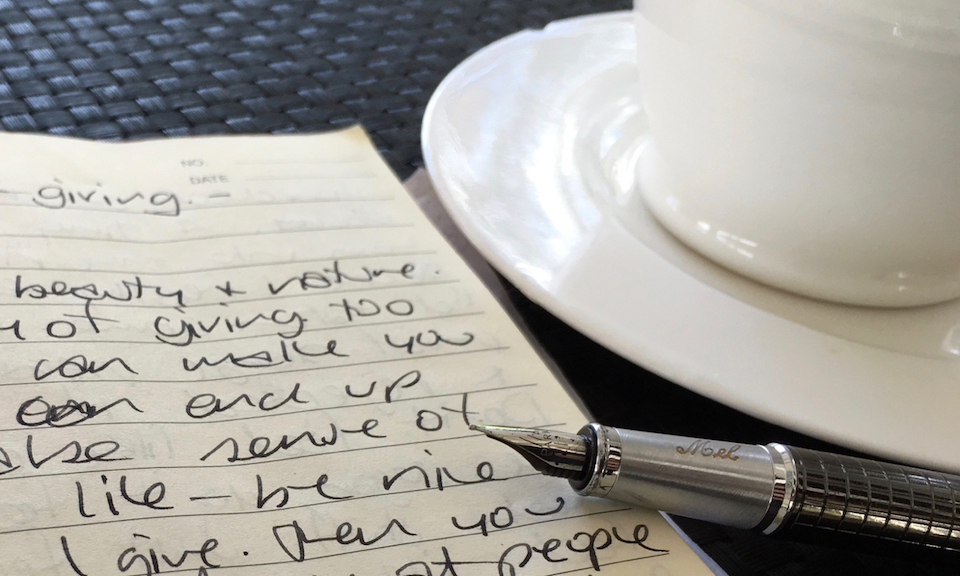 NO.
DATE
- giving. -
beauty + nature.
of giving too
can make you
end up
sense of
like - be nice
I give. Then you
at people
Mel